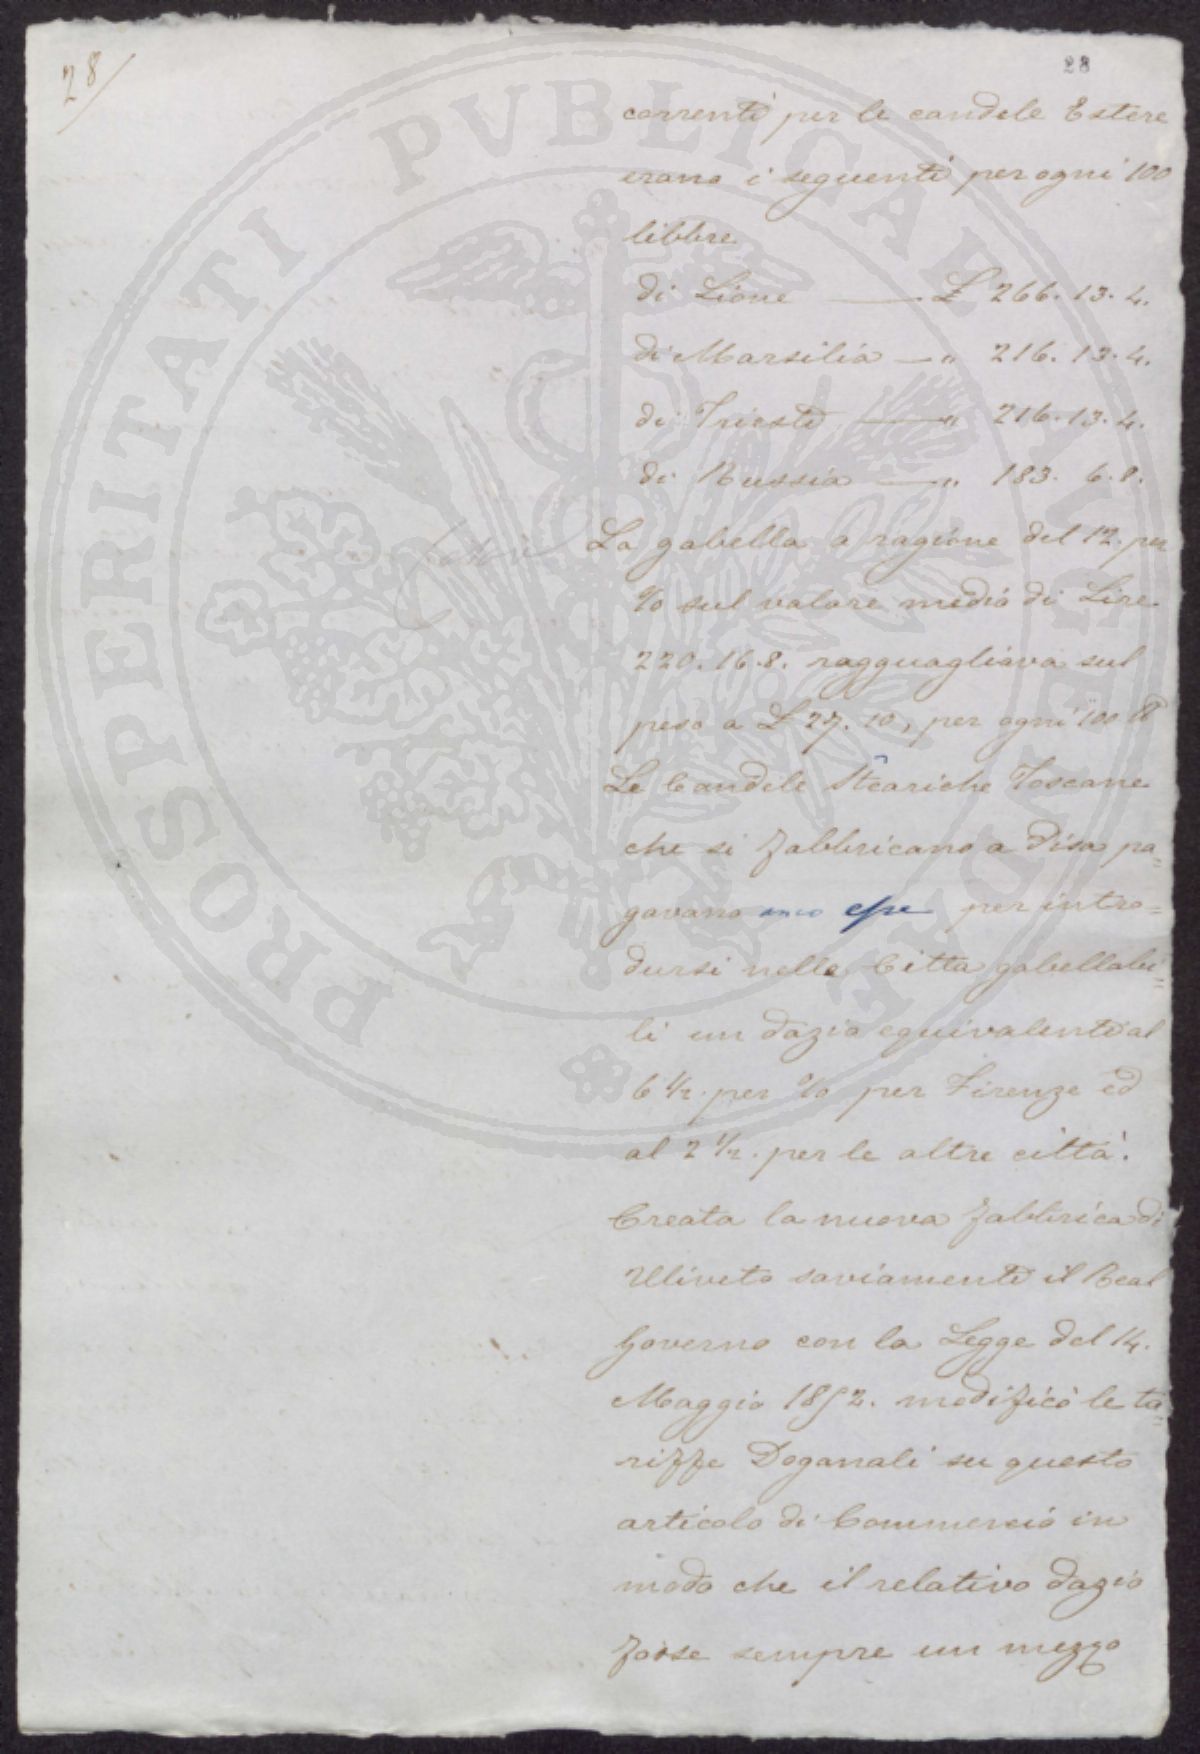 28/
28
correnti per le candele Estere
erano i seguenti per ogni 100
libbre
di Lione — £ 266. 13. 4.
di Marsilia — " 216. 13. 4.
di Trieste — " 216. 13. 4.
di Russia — " 183. 6. 8.
La gabella a ragione del 12. per
% sul valore medio di Lire
220. 16. 8. ragguagliava sul
peso a £ 27. 10, per ogni 100 lb
Le Candele Steariche Toscane
che si fabbricano a Pisa pa=
gavano anco esse per intro=
dursi nelle Citta gabellabi=
li un dazio equivalente al
6 1/2. per % per Firenze ed
al 2 1/2. per le altre città.
Creata la nuova fabbrica di
Uliveto saviamente il Real
Governo con la Legge del 14.
Maggio 1852. modificò le ta=
riffe Doganali su questo
articolo di Commercio in
modo che il relativo dazio
fosse sempre un mezzo
PROSPERITATI PVBLICAE AVGENDAE